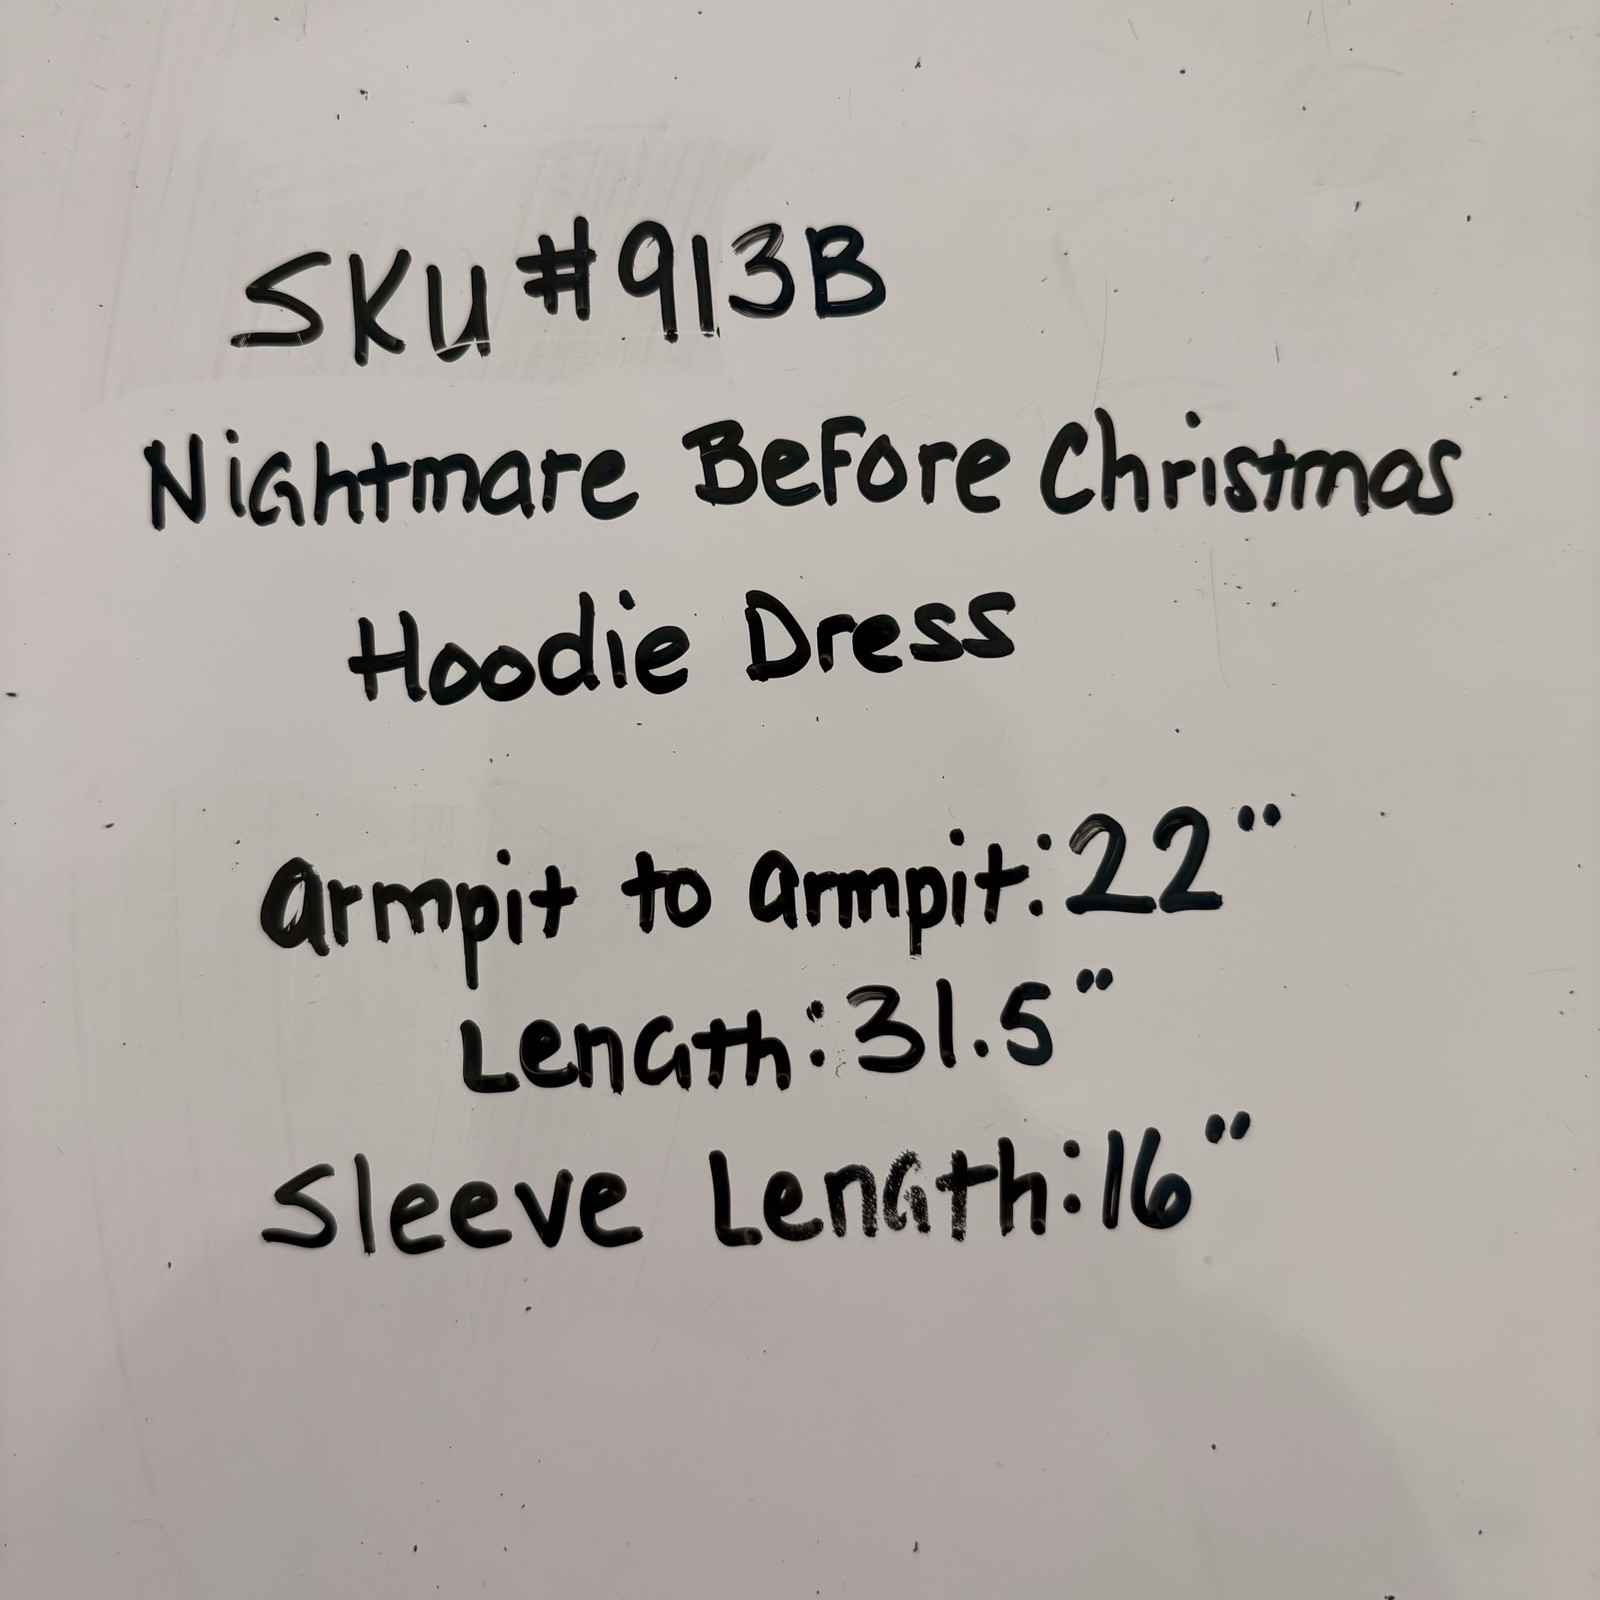 SKU #913B
Nightmare Before Christmas
Hoodie Dress
armpit to armpit: 22"
Length: 31.5"
Sleeve Length: 16"